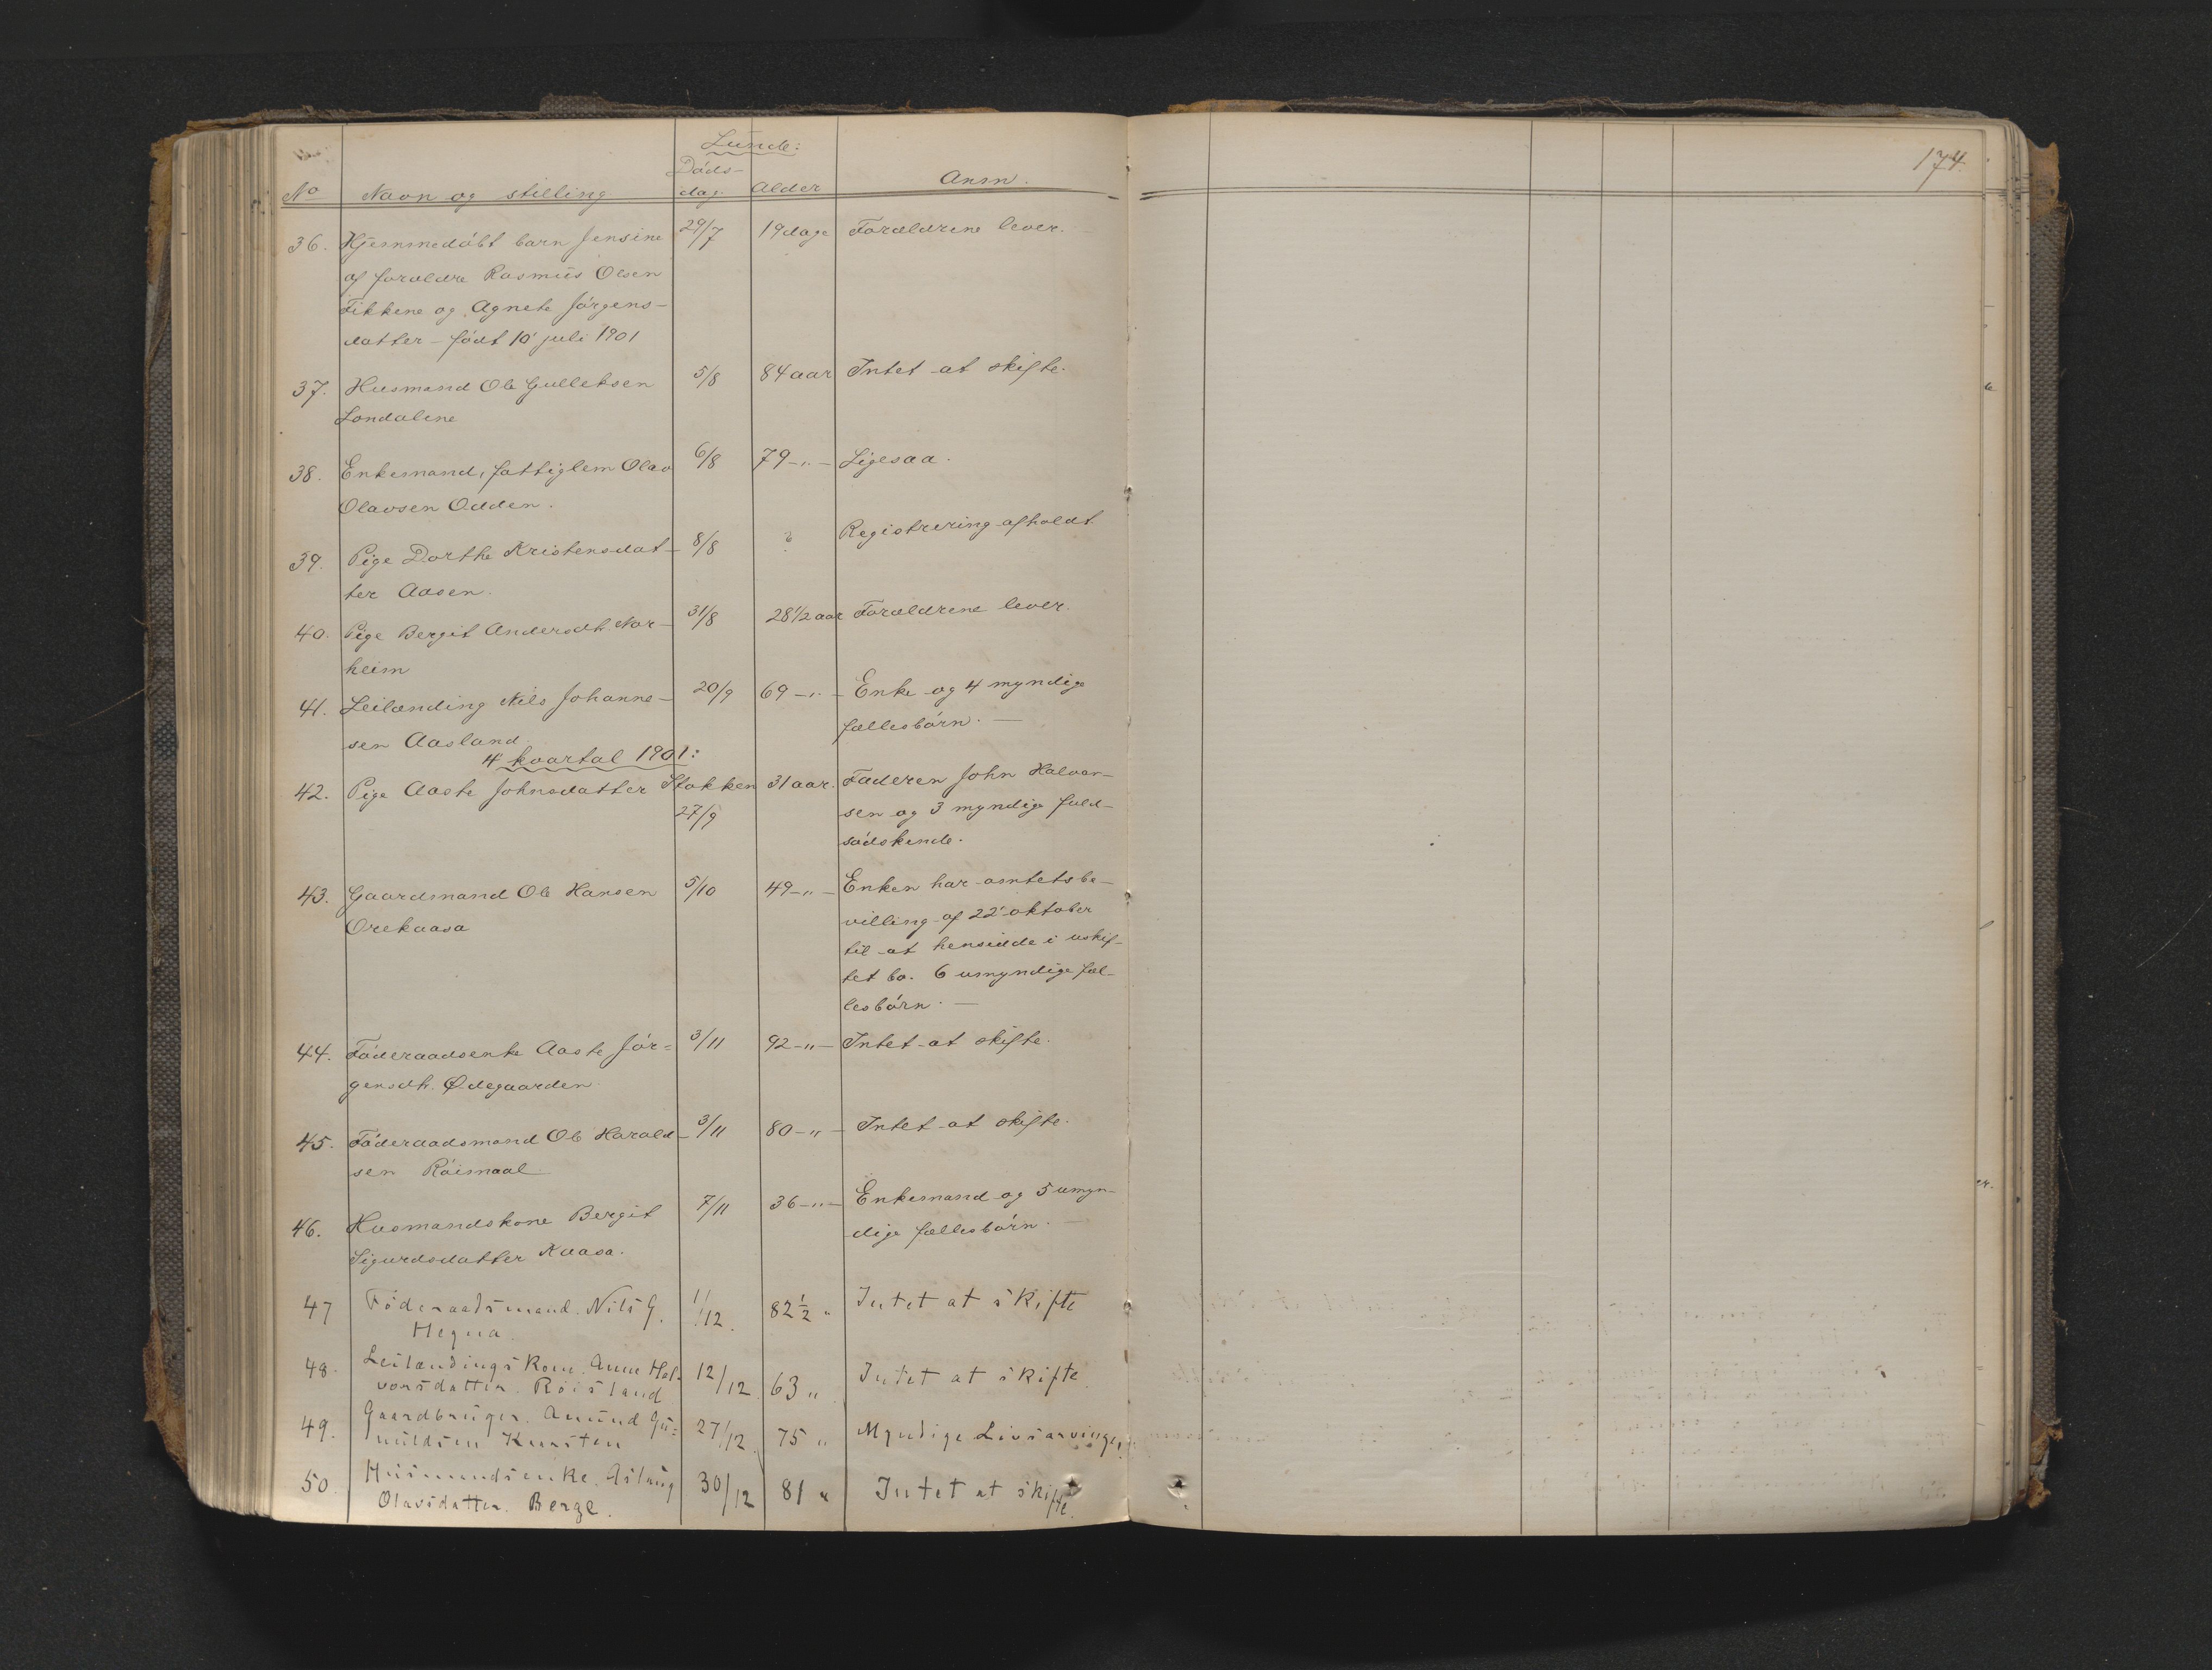 174.
Lunde:
No Navn og stilling Döds-
dag. Alder Anm.
36. Hjemmedöbt barn Jensine 29/7 19 dage Forældrene lever.
af forældre Rasmus Olsen
Tikkene og Agnete Jörgens-
datter – födt 10' juli 1901
37. Husmand Ole Gulleksen 5/8 84 aar Intet at skifte.
Londalene
38. Enkemand, fattiglem Olav 6/8 79 -„- Ligesaa.
Olavsen Odden.
39. Pige Dorthe Kristensdat- 8/8 ? Registrering afholdt
ter Aasen.
40. Pige Bergit Andersdt. Nor- 31/8 28 1/2 aar Forældrene lever.
heim
41. Leilænding Nils Johanne- 20/9 69 -„- Enke og 4 myndige
sen Aasland. fællesbörn. —
4' kvartal 1901:
42. Pige Aaste Johnsdatter Stokken 31 aar. Faderen John Halvor-
27/9 sen og 3 myndige fuld-
södskende.
43. Gaardmand Ole Hansen 5/10 49 -„- Enken har amtets be-
Orekaasa villing af 22' oktober
til at hensidde i uskif-
tet bo. 6 umyndige fæl-
lesbörn. —
44. Föderaadsenke Aaste Jör= 3/11 92 -„- Intet at skifte.
gensdt. Ødegaarden
45. Föderaadsmand Ole Harald- 3/11 80 -„- Intet at skifte.
sen Röimaal
46. Husmandskone Bergit 7/11 36 -„- Enkemand og 5 umyn-
Sigurdsdatter Kaasa. dige fællesbörn. —
47 Föderaadsmand. Nils G. 11/12. 82 1/2 „ Intet at skifte
Hegna.
48. Leilændings Kone. Anne Hal- 12/12 63 „ Intet at skifte
vorsdatter. Röisland
49. Gaardbruger. Amund Gu= 27/12. 75 „ Myndige Livsarvinger.
nuldsen Kursten
50. Husmandsenke. Aslaug 30/12 81 „ Intet at skifte.
Olavsdatter. Berge.